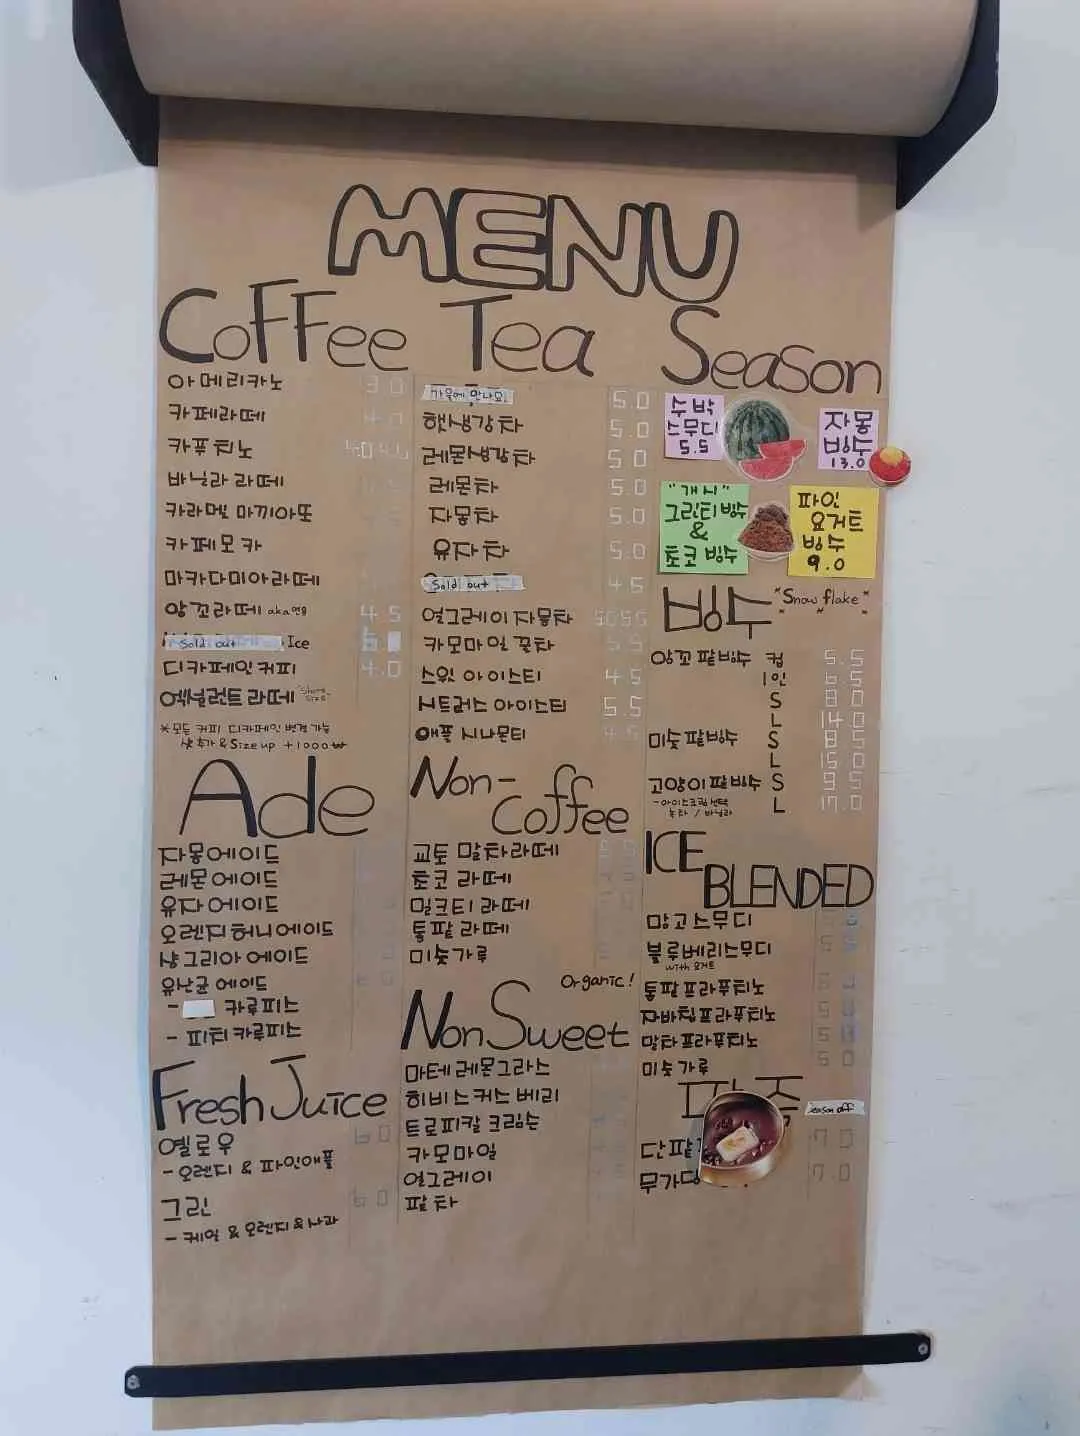 MENU
Coffee
아메리카노 3.0
카페라떼 4.0
카푸치노
바닐라 라떼
카라멜 마끼아또
카페모카
마카다미아라떼
앙꼬라떼 aka연유 4.5
Sold out Ice
디카페인커피 4.0
엑설런트 라떼 "Short size"
*모든 커피 디카페인 변경 가능
샷추가 & Size up +1000₩
Ade
자몽에이드
레몬에이드
유자에이드
오렌지허니에이드
샹그리아 에이드
유산균 에이드
- 카루피스
- 피치 카루피스
Fresh Juice
옐로우 6.0
- 오렌지 & 파인애플
그린 6.0
- 케일 & 오렌지 & 사과
Tea
가을에 만나요! 5.0
햇생강차 5.0
레몬생강차 5.0
레몬차 5.0
자몽차 5.0
유자차 5.0
Sold out 4.5
얼그레이 자몽차 5.0 5.5
카모마일 꿀차 5.5
스윗 아이스티 4.5
시트러스 아이스티 5.5
애플 시나몬티 4.5
Non-coffee
교토 말차라떼
초코 라떼
밀크티 라떼
통팥 라떼
미숫가루
Organic!
Non Sweet
마테 레몬그라스
히비스커스 베리
트로피칼 크림슨
카모마일
얼그레이
팥차
Season
수박
스무디
5.5
자몽
빙수
13.0
"개시"
그린티 빙수
&
초코 빙수
파인
요거트
빙수
9.0
빙수 *Snow flake*
앙꼬 팥빙수 컵 5.5
1인 6.5
S 8.0
L 14.0
미숫 팥빙수 S 8.5
L 15.0
고양이 팥빙수 S 9.5
L 17.0
- 아이스크림 선택
녹차 / 바닐라
ICE
BLENDED
망고스무디
블루베리스무디
with 요거트
통팥프라푸치노
자바칩프라푸치노
말차프라푸치노
미숫가루 5.0
Season off
단팥 7.0
무가당 7.0